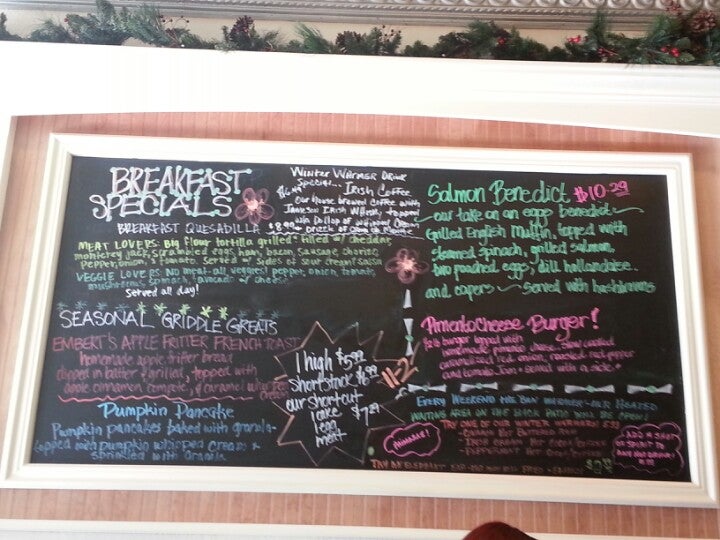 BREAKFAST
SPECIALS
BREAKFAST QUESADILLA $8.99
MEAT LOVERS: Big flour tortilla grilled + filled w/ cheddar,
monterey jack, scrambled eggs, ham, bacon, sausage, chorizo,
pepper, onion, + tomato. Served w/ sides of sour cream + salsa
VEGGIE LOVERS: NO meat-all veggies! pepper, onion, tomato,
mushrooms, spinach, avocado w/ cheese
Served all day!
SEASONAL GRIDDLE GREATS
EMBERT'S APPLE FRITTER FRENCH TOAST
homemade apple fritter bread
dipped in batter + grilled, topped with
apple cinnamon compote, + caramel
Pumpkin Pancake
Pumpkin pancakes baked with granola-
topped w/ pumpkin whipped cream +
sprinkled with granola
Winter Warmer Drink
Special... Irish Coffee
Our house brewed coffee with
Jameson Irish Whisky, topped
w/a Dollop of Whipped Cream
+ drizzle of
1 high $5.99
shortstack $6.99
our shortcut $7.29
1 cake
1 egg
meat
Salmon Benedict $10.29
our take on an eggs benedict
Grilled English Muffin, topped with
steamed spinach, grilled salmon,
two poached eggs, dill hollandaise..
and capers ~ Served with hashbrowns
Pimento Cheese Burger!
burger topped with
homemade pimento cheese, slow cooked
caramelized red onion, roasted red pepper
and tomato jam + served with a side
Every Weekend
Heated
Waiting Area on the Back Patio will be open
Try one of our Winter Warmers!
Irish Cream Hot
Peppermint Hot
Add a shot